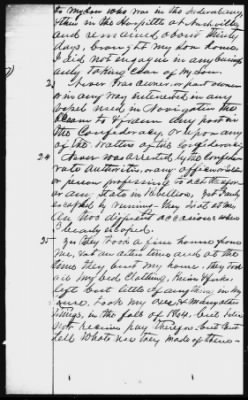 to my son who was in the Federal army
then in the Hospitle at Nashville
and remained about thirty
days, brought my son home,
I did not engage in any business
only taking care of my son.
2 Never was owner, or part owner
or in any way interested in any
vessel used in Navigating the
to & from any port in
the Confederacy or upon any
of the waters of the Confederacy
24 Never was arrested by the Confed-
rate authorities, or any officer soldier
or person professing to act therefor
or any State in Rebellion, got
escaped by running they shot at me
on two different occasions when
I barely escaped.
25 Yes they took a fine horse from
me, and at an other time and at the
time they burnt my home, they took
all my bed clothing,
left but little of anything in my
house, took my & many other
things, in the fall of 1864, but I did
not receive pay therefor, but can't
tell what use they made of them -